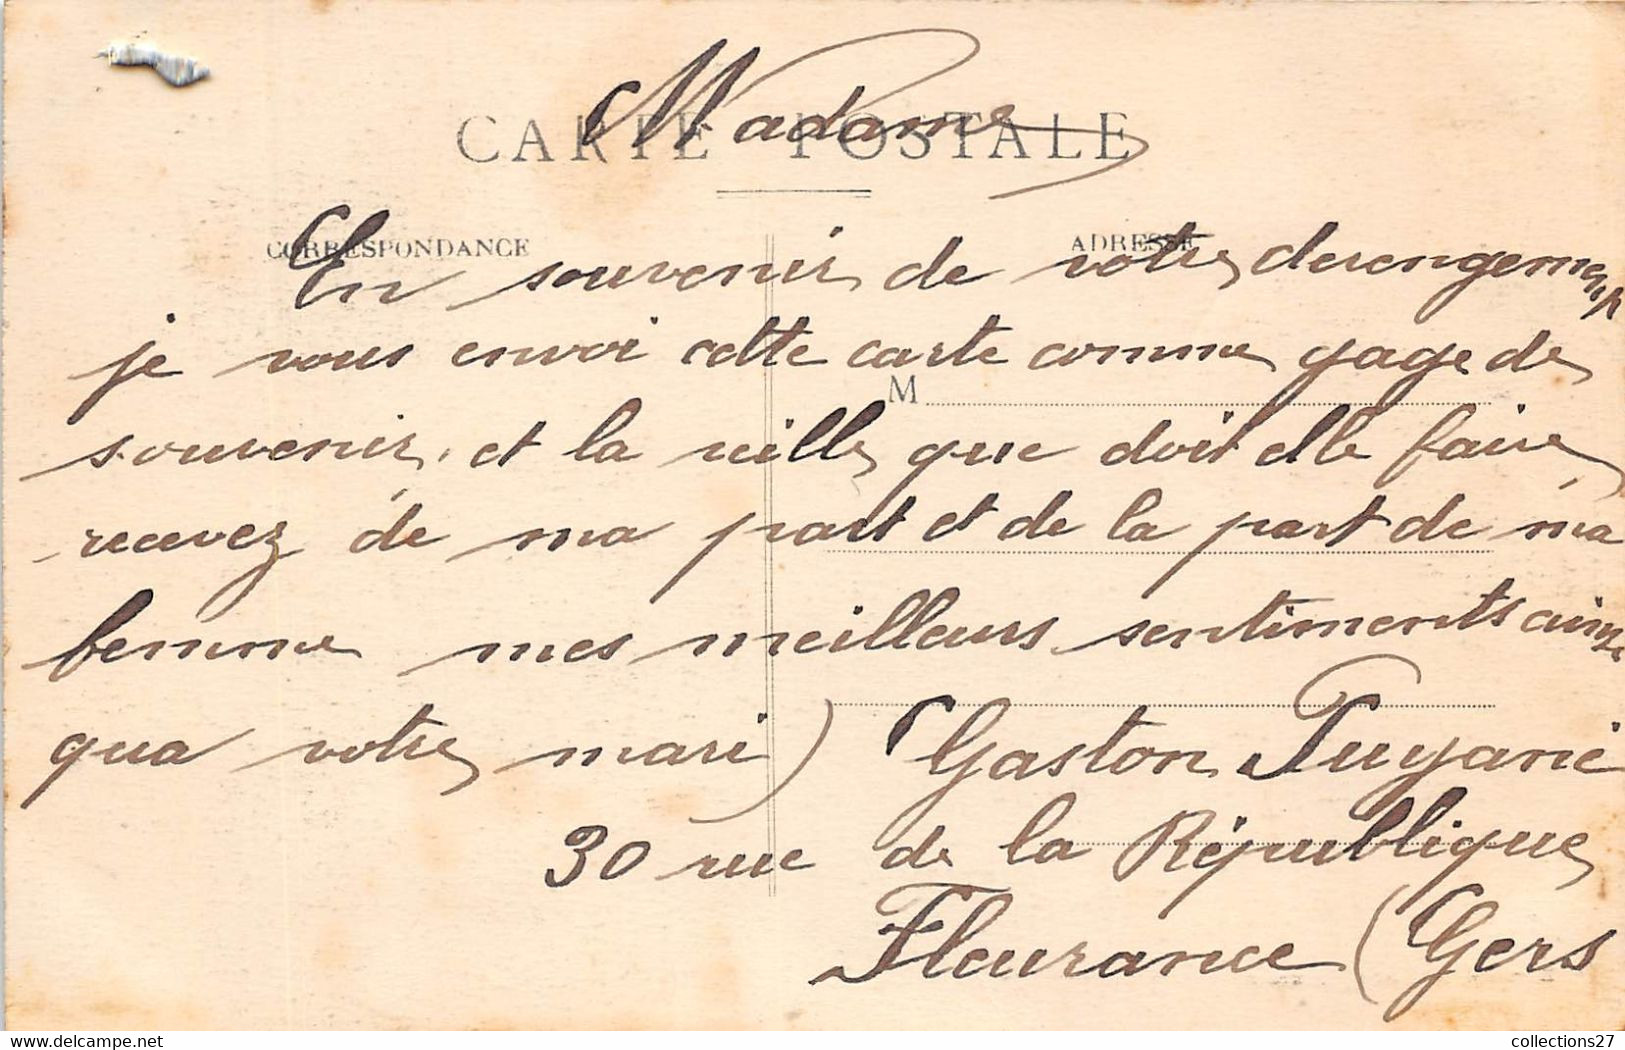 Madame
CARTE POSTALE
CORRESPONDANCE
ADRESSE
En souvenir de votre derengement
je vous envoi cette carte comme gage de
M
souvenir, et la veille que doit elle faire
recevez de ma part et de la part de ma
femme mes meilleurs sentiments ainsi
qua votre mari) Gaston Puyané
30 rue de la République
Fleurance (Gers
collections27